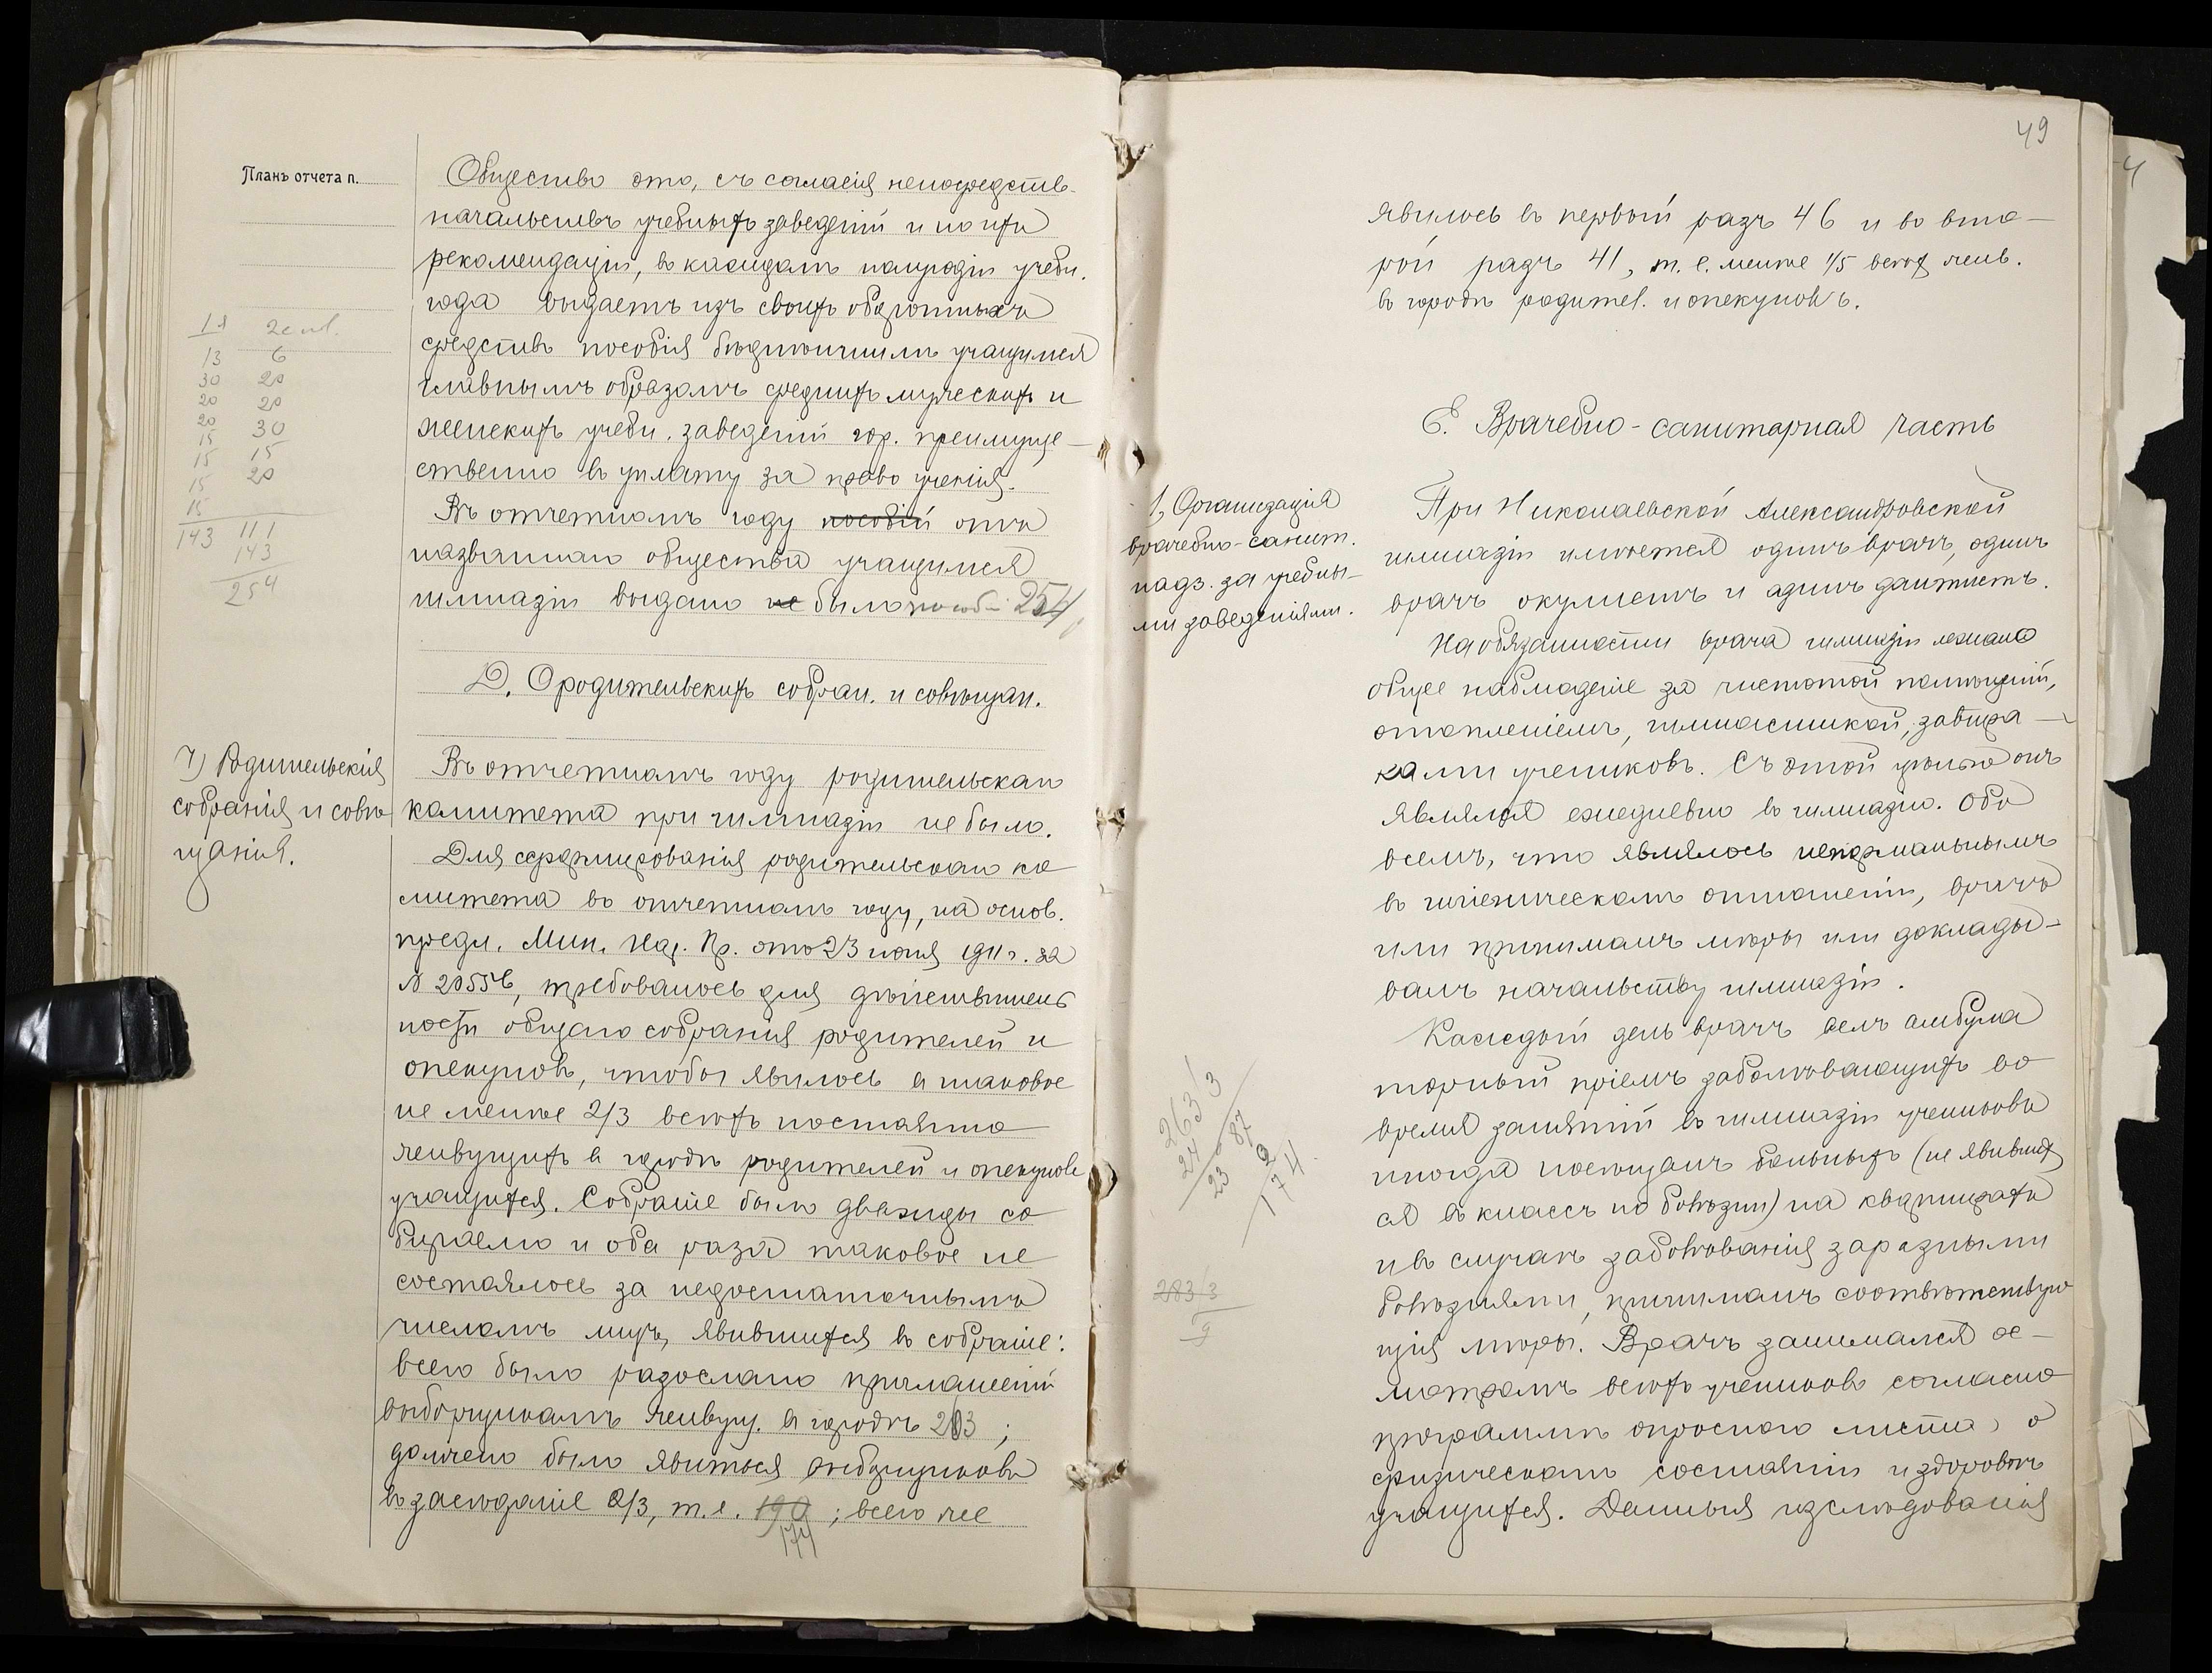 Планъ отчета п.
1я 2е пл.
13 6
30 20
20 20
20 30
15 15
15 20
15
15
143 111
143
254
Общество это, съ согласія непосредств.
начальствъ учебныхъ заведеній и по ихъ
рекомендаціи, въ каждомъ полугодіи учебн.
года выдаетъ изъ своихъ оборотныхъ
средствъ пособія бѣднѣйшимъ учащимся
главнымъ образомъ среднихъ мужескихъ и
женскихъ учебн. заведеній гор. преимуще-
ственно въ уплату за право ученія.
Въ отчетномъ году пособій отъ
названнаго общества учащимся
гимназіи выдано не было пособій 254
Д. О родительскихъ собран. и совѣщан.
1) Родительскія
собранія и совѣ
щанія.
Въ отчетномъ году родительскаго
комитета при гимназіи не было.
Для сформированія родительскаго ко
митета въ отчетномъ году, на основ.
предл. Мин. Нар. Пр. отъ 23 іюня 1911 г. за
№ 20556, требовалось для дѣйствитель
ности общаго собранія родителей и
опекуновъ, чтобы явилось в таковое
не менѣе 2/3 всѣхъ постоянно
живущихъ в городѣ родителей и опекуновъ
учащихся. Собраніе было дважды со
бираемо и оба раза таковое не
состоялось за недостаточнымъ
числомъ лицъ, явившихся въ собраніе:
всего было разослано приглашеній
выборщикамъ живущ. в городѣ 263;
должно было явиться выборщиковъ
въ засѣданіе 2/3, т.е. 190; всего же
174
49
явилось въ первый разъ 46 и во вто-
рой разъ 41, т.е. менѣе 1/5 всѣхъ жив.
въ городѣ родител. и опекуновъ.
Е. Врачебно-санитарная часть
1, Организація
врачебно-санит.
надз. за учебны-
ми заведеніями.
При Николаевской Александровской
гимназіи имѣется одинъ врачъ, одинъ
врачъ окулистъ и одинъ дантистъ.
На обязанности врача гимназіи лежало
общее наблюденіе за чистотой помѣщеній,
отопленіемъ, гимнастикой, завтра-
ками учениковъ. Съ этой цѣлью онъ
являлся ежедневно въ гимназію. Обо
всемъ, что являлось ненормальнымъ
въ гигіеническомъ отношеніи, врачъ
или принималъ мѣры или доклады-
валъ начальству гимназіи.
Каждый день врачъ велъ амбула
торный пріемъ заболѣвающихъ во
время занятій въ гимназіи учениковъ
иногда посѣщалъ больныхъ (не явивших
ся въ классъ по болѣзни) на квартирахъ
и въ случаѣ заболѣванія заразными
болѣзнями, принималъ соотвѣтствую
щія мѣры. Врачъ занимался ос-
мотромъ всѣхъ учениковъ согласно
программѣ опроснаго листа, о
физическомъ состояніи и здоровьѣ
учащихся. Данныя изслѣдованія
263 3
24 87
23 2
174
283 3
9